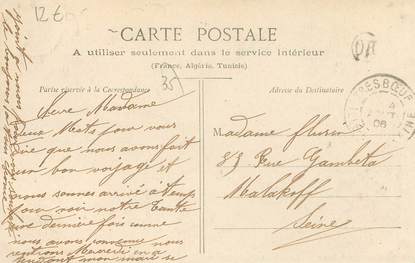 12 €
CARTE POSTALE
A utiliser seulement dans le service intérieur
(France, Algérie, Tunisie)
Partie réservée à la Correspondance
Adresse du Destinataire
35
OR
RESBŒUF
4
06
Chère Madame
Deux Mots pour vous
dire que nous avons fait
un bon voyage et
nous sommes arrivé a temps
pour voir notre Tante
une dernière fois comme
nous avons convenu nous
rentrons Mercredi
mon mari se
Madame
83 Rue Gambeta
Malakoff
Seine